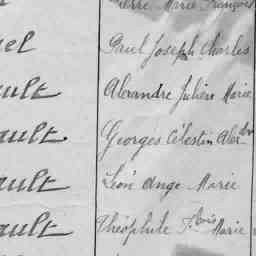 Pierre Marie François
el Paul Joseph Charles
ault Alexandre Julien Marie
ault. Georges Célestin Alexdre
ault Léon Ange Marie
ault Théophile Fçois Marie